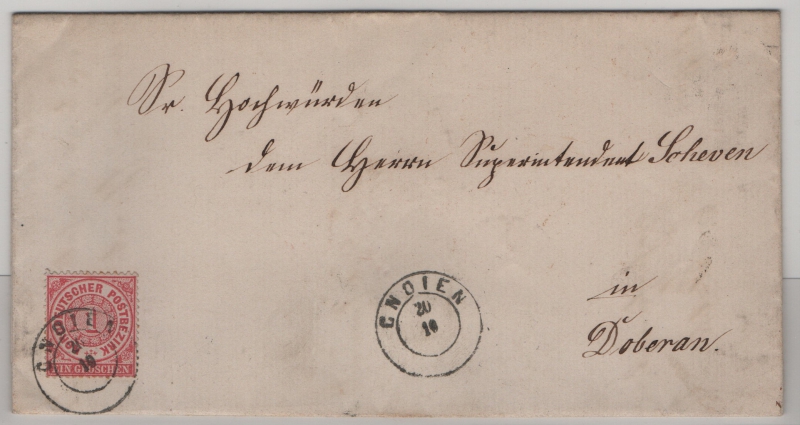 Sr. Hochwürden
dem Herrn Superintendent Scheven
in
Doberan.
NORDDEUTSCHER POSTBEZIRK
1
EIN GROSCHEN
GNOIEN
20
10
GNOIEN
20
10